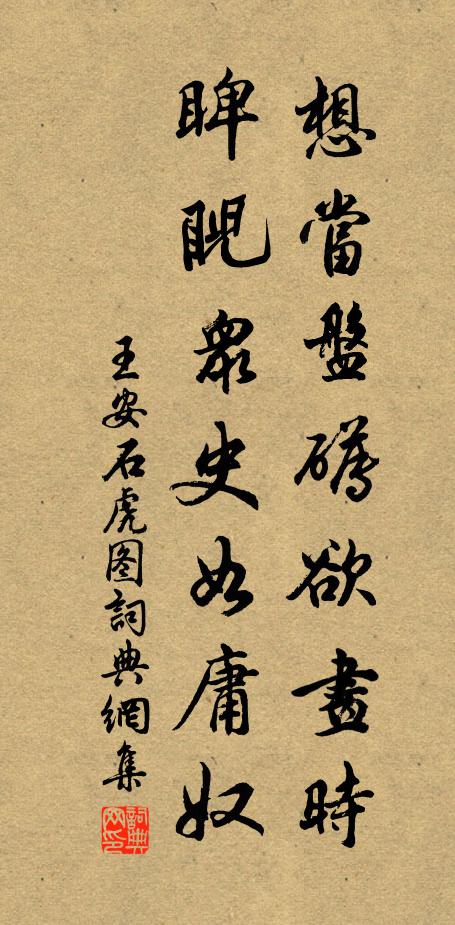 想當盤礴欲畫時
睥睨衆史如庸奴
王安石虎图詞典網集
詞典网印